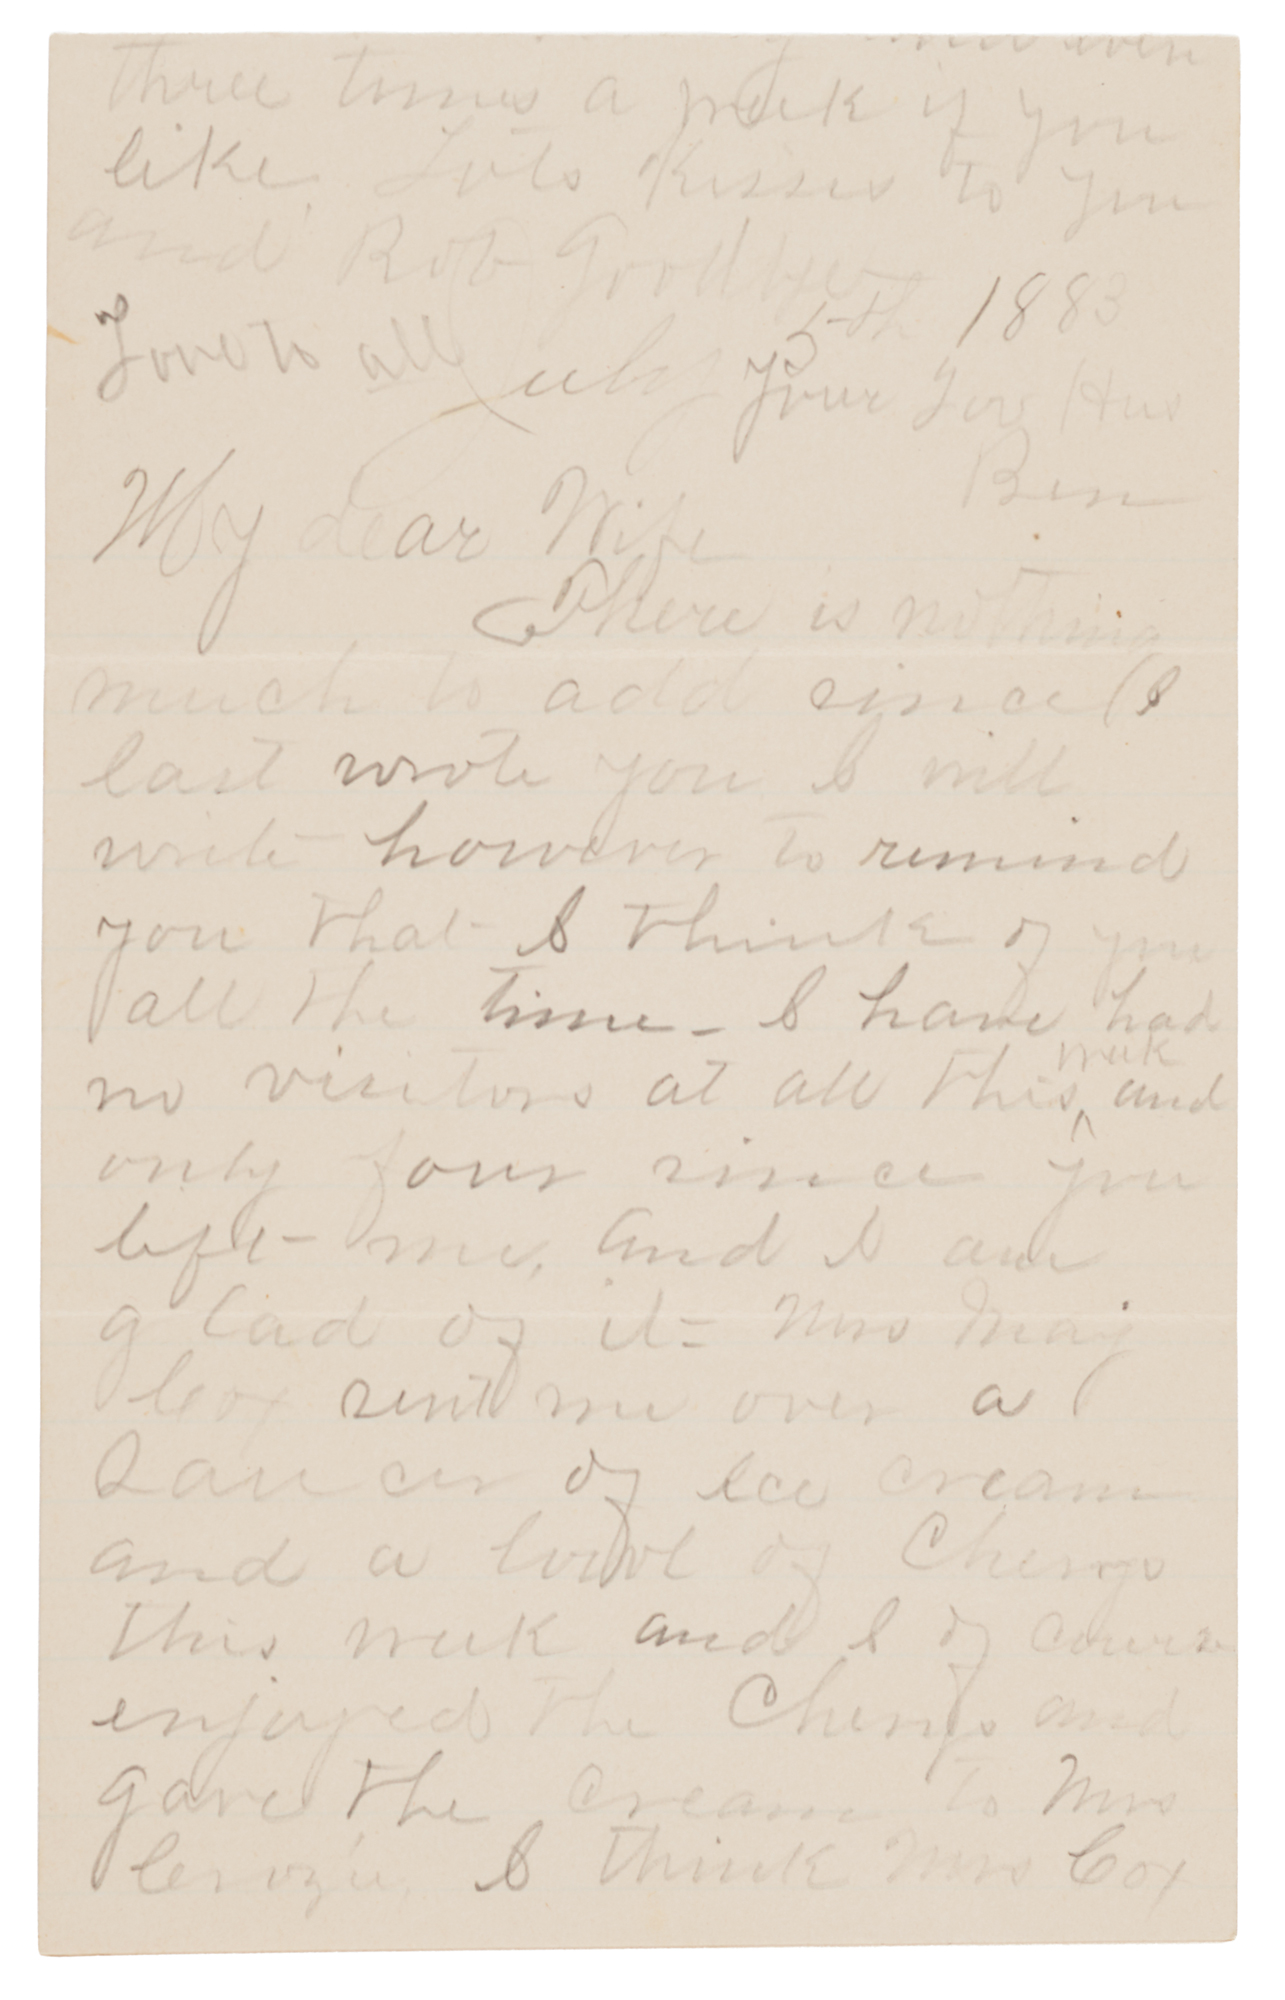 even
three times a week if you
like. Lots Kisses to you
and Rob Goodbye
Love to all
Your Lov Hus
Ben
July 5th 1883
My dear Wife
There is nothing
much to add since I
last wrote you I will
write however to remind
you that I think of you
all the time - I have had
no visitors at all this week and
only four since you
left me, and I am
glad of it = Mrs Maj
Cox sent me over a
Saucer of Ice cream
and a bowl of Cherrys
this week and I of course
enjoyed the Cherrys and
gave the cream to Mrs
I think Mrs Cox